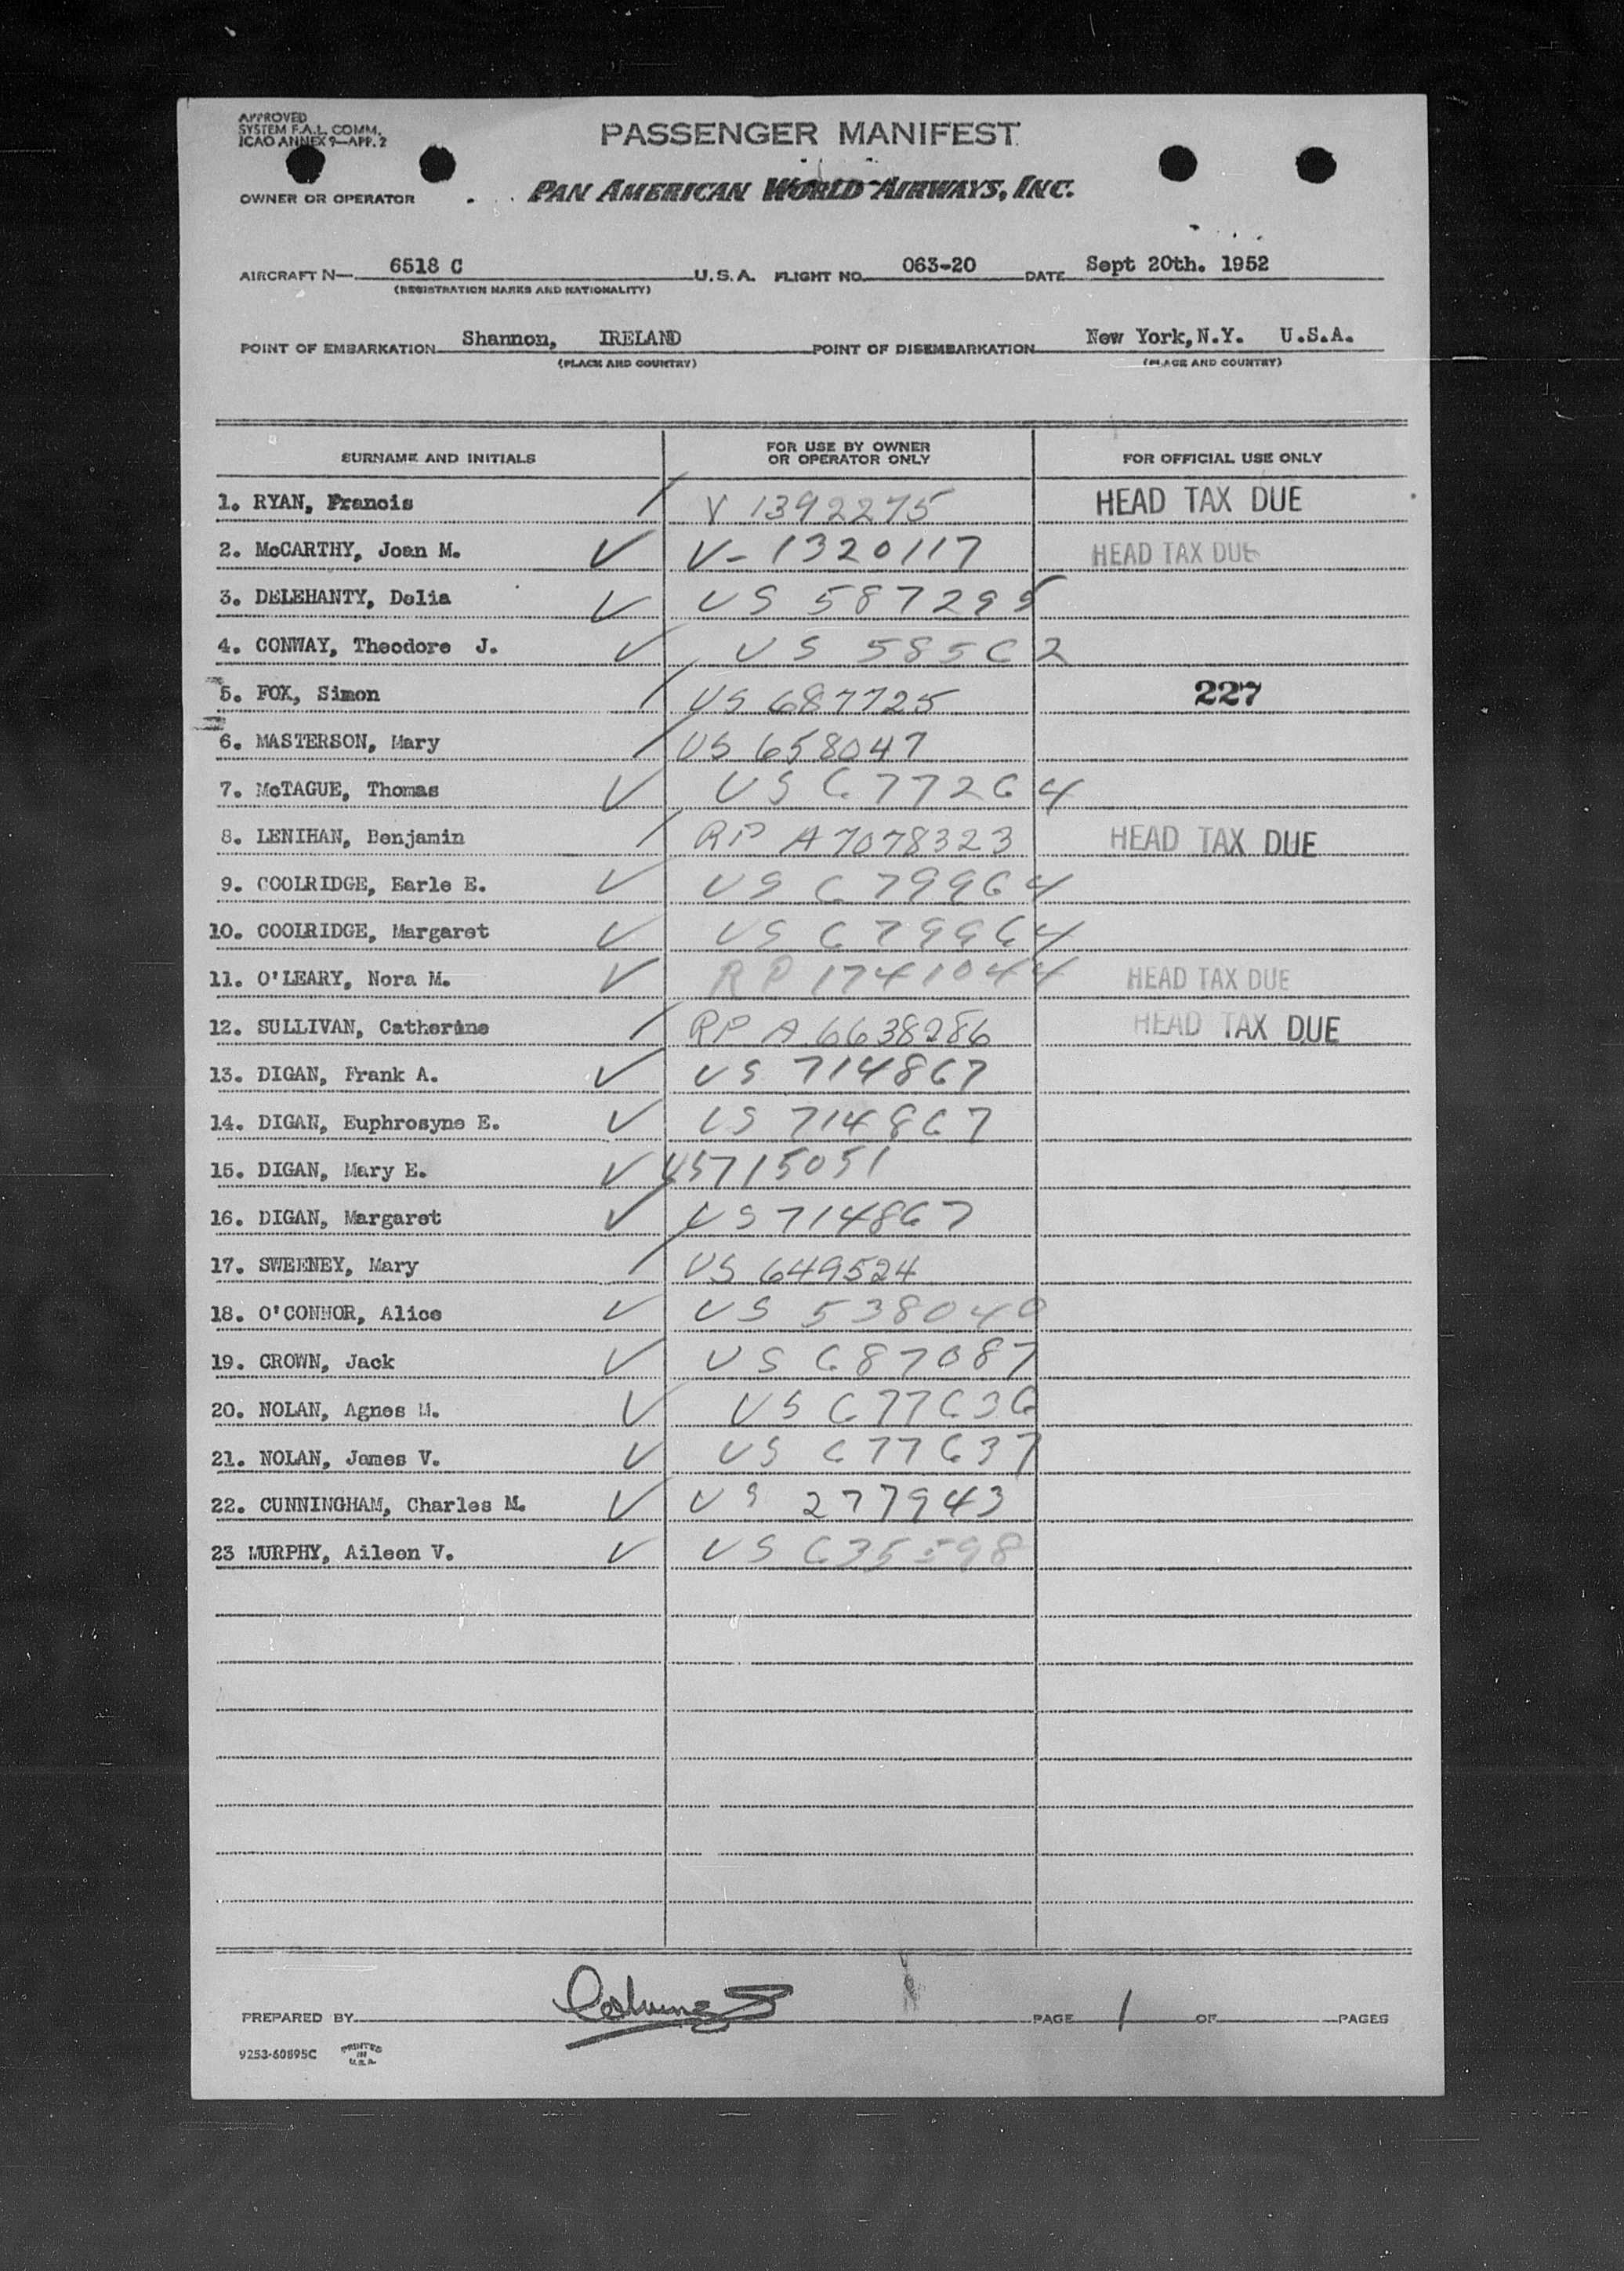 APPROVED
SYSTEM F.A.L. COMM.
ICAO ANNEX 9—APP. 2
PASSENGER MANIFEST
OWNER OR OPERATOR PAN AMERICAN WORLD AIRWAYS, INC.
AIRCRAFT N— 6518 C U.S.A. FLIGHT NO. 063-20 DATE Sept 20th. 1952
(REGISTRATION MARKS AND NATIONALITY)
POINT OF EMBARKATION Shannon, IRELAND POINT OF DISEMBARKATION New York, N.Y. U.S.A.
(PLACE AND COUNTRY) (PLACE AND COUNTRY)
SURNAME AND INITIALS FOR USE BY OWNER OR OPERATOR ONLY FOR OFFICIAL USE ONLY
1. RYAN, Francis / V 1392275 HEAD TAX DUE
2. McCARTHY, Joan M. ✓ V- 1320117 HEAD TAX DUE
3. DELEHANTY, Delia ✓ US 587295
4. CONWAY, Theodore J. ✓ US 58562
5. FOX, Simon / US 687725 227
6. MASTERSON, Mary / US 658047
7. McTAGUE, Thomas ✓ US 677264
8. LENIHAN, Benjamin / RP A7078323 HEAD TAX DUE
9. COOLRIDGE, Earle E. ✓ US 679964
10. COOLRIDGE, Margaret ✓ US 679964
11. O'LEARY, Nora M. ✓ RP 1741044 HEAD TAX DUE
12. SULLIVAN, Catherine / RP A 6638286 HEAD TAX DUE
13. DIGAN, Frank A. ✓ US 714867
14. DIGAN, Euphrosyne E. ✓ US 714867
15. DIGAN, Mary E. ✓ US715051
16. DIGAN, Margaret ✓ US 714867
17. SWEENEY, Mary / US 649524
18. O'CONNOR, Alice ✓ US 538040
19. CROWN, Jack ✓ US 687087
20. NOLAN, Agnes M. ✓ US 677636
21. NOLAN, James V. ✓ US 677637
22. CUNNINGHAM, Charles M. ✓ US 277943
23 MURPHY, Aileen V. ✓ US 635598
PREPARED BY PAGE 1 OF PAGES
9253-60895C PRINTED IN U.S.A.